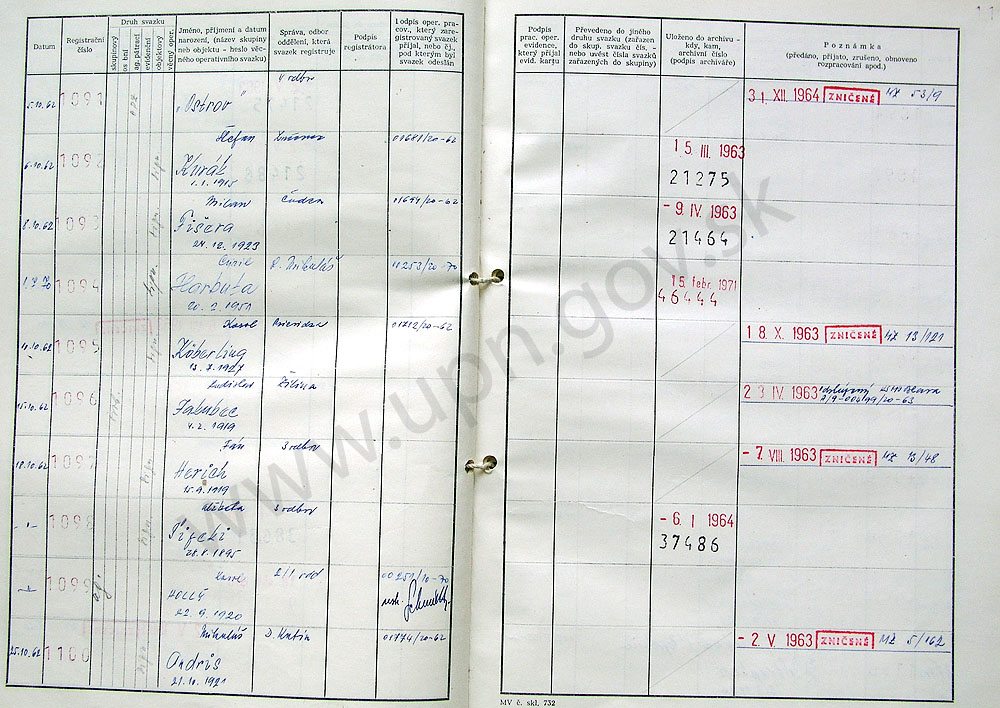 Datum
Registrační číslo
Druh svazku
skupinový
osobní
ag. pátrací
evidenční
objektový
věcný oper.
Jméno, příjmení a datum
narození, (název skupiny
neb objektu - heslo věc-
ného operativního svazku)
Správa, odbor
oddělení, která
svazek registruje
Podpis
registrátora
Podpis oper. pra-
cov., který zare-
gistrovaný svazek
přijal, nebo čj.,
pod kterým byl
svazek odeslán
Podpis
prac. oper.
evidence,
který přijal
evid. kartu
Převedeno do jiného
druhu svazku (zařazen
do skup. svazku čís. -
nebo uvést čísla svazků
zařazených do skupiny)
Uloženo do archivu -
kdy, kam,
archivní číslo
(podpis archiváře)
Poznámka
(předáno, přijato, zrušeno, obnoveno
rozpracování apod.)
5.10.62 1091 "Ostrov" V odbor 31. XII. 1964 ZNIČENÉ 53/9
6.10.62 1092 Štefan 01681/20-62 15. III. 1963
Kurák
1.1.1915 21275
8.10.62 1093 Milan Čadca 01694/20-62 - 9. IV. 1963
Fišera
24.12.1923 21464
1094 O. Mikuláš 01253/20-70 15. febr. 1971
Harbuta
20.2.1951 46444
10.10.62 1095 Karol Prievidza 01712/20-62 18. X. 1963 ZNIČENÉ 13/121
Köberling
13.7.1927
15.10.62 1096 Ladislav Žilina IV. 1963
Jakubec
4.2.1919
18.10.62 1097 Ján 3 odbor - 7. VIII. 1963 ZNIČENÉ 13/48
Herich
15.9.1919
-"- 1098 Alžbeta 3 odbor - 6. I 1964
28.8.1895 37486
-"- 1099 ag. Karol 2/I. odd 00251/10-70
HOLLÝ
22.9.1920
25.10.62 1100 Mikuláš D. Kubín 01774/20-62 - 2. V. 1963 ZNIČENÉ 5/162
Ondris
21.10.1921
www.upn.gov.sk
MV č. skl. 732